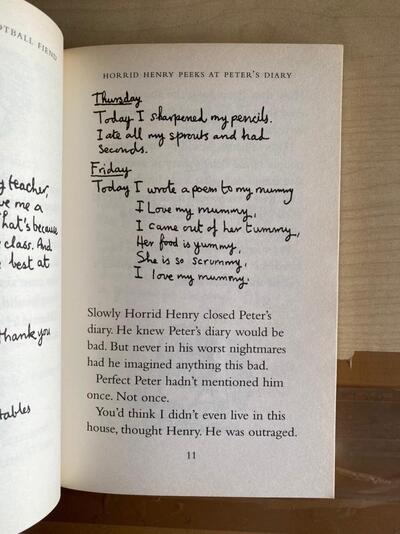 OTBALL FIEND
y teacher,
ve me a
That's because
class. And
best at
thank you
tables
HORRID HENRY PEEKS AT PETER'S DIARY
Thursday
Today I sharpened my pencils.
I ate all my sprouts and had
seconds.
Friday
Today I wrote a poem to my mummy
I Love my mummy,
I came out of her tummy,
Her food is yummy,
She is so scrummy,
I love my mummy.
Slowly Horrid Henry closed Peter's
diary. He knew Peter's diary would be
bad. But never in his worst nightmares
had he imagined anything this bad.
Perfect Peter hadn't mentioned him
once. Not once.
You'd think I didn't even live in this
house, thought Henry. He was outraged.
11